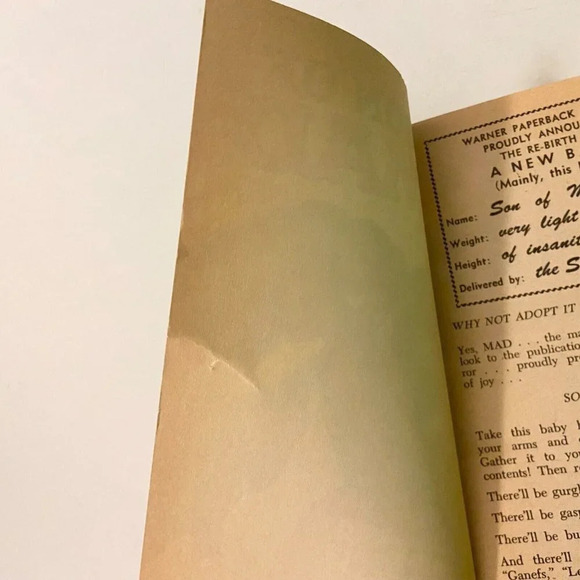 WARNER PAPERBACK
PROUDLY ANNOU
THE RE-BIRTH
A NEW B
(Mainly, this
Name: Son of M
Weight: very light
Height: of insanit
Delivered by: the S
WHY NOT ADOPT IT
Yes, MAD . . . the ma
look to the publication
ror . . . proudly pre
of joy . . .
SO
Take this baby
your arms and
Gather it to you
contents! Then r
There'll be gurgl
There'll be gasp
There'll be bu
And there'll
"Ganefs," "Le